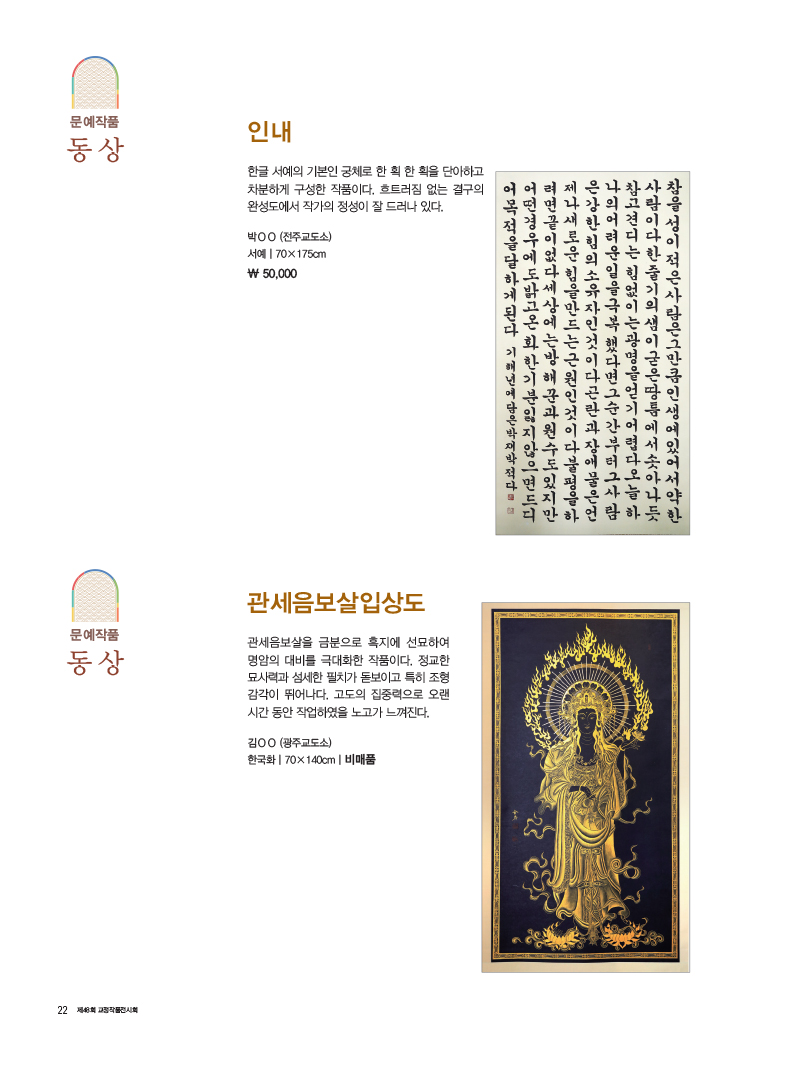 문예작품
동상
인내
한글 서예의 기본인 궁체로 한 획 한 획을 단아하고
차분하게 구성한 작품이다. 흐트러짐 없는 결구의
완성도에서 작가의 정성이 잘 드러나 있다.
박○○ (전주교도소)
서예 | 70×175cm
₩ 50,000
참을성이 적은 사람은 그만큼 인생에 있어서 약한
사람이다 한 줄기의 샘이 굳은 땅 틈에서 솟아나듯
참고 견디는 힘 없이는 광명을 얻기 어렵다 오늘 하
나의 어려운 일을 극복했다면 그 순간부터 그 사람
은 강한 힘의 소유자인 것이다 곤란과 장애물은 언
제나 새로운 힘을 만드는 근원인 것이다 불평을 하
려면 끝이 없다 세상에는 방해꾼과 원수도 있지만
어떤 경우에도 밝고 온화한 기분 잃지 않으면 드디
어 목적을 달하게 된다 기해년에 담은 박재박 적다
문예작품
동상
관세음보살입상도
관세음보살을 금분으로 흑지에 선묘하여
명암의 대비를 극대화한 작품이다. 정교한
묘사력과 섬세한 필치가 돋보이고 특히 조형
감각이 뛰어나다. 고도의 집중력으로 오랜
시간 동안 작업하였을 노고가 느껴진다.
김○○ (광주교도소)
한국화 | 70×140cm | 비매품
22 제48회 교정작품전시회